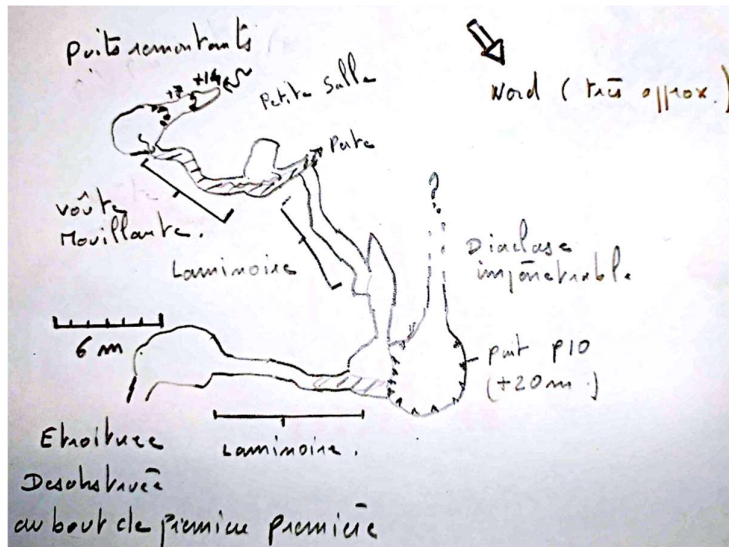 Puits remontants
+7 +14
Petite Salle
Nord (très approx.)
Perte
Voûte
Mouillante.
Laminoire
?
Diaclase
impénétrable
6 m.
puit P10
(+20m.)
Laminoire.
Etroiture
Desobstruée
au bout de première première